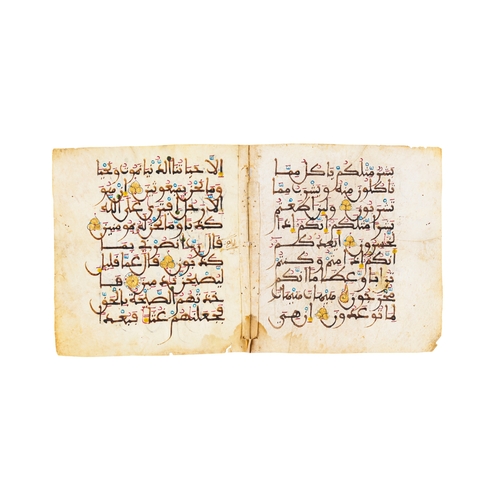 بشر مثلكم ياكل مما
تاكلون منه ويشرب مما
تشربون ولين اطعتم
بشرا مثلكم انكم اذا
لخسرون ايعدكم
انكم اذا متم وكنتم
ترابا وعظما انكم
مخرجون هيهات هيهات
لما توعدون ان هي
الا حياتنا الدنيا نموت ونحيا
وما نحن بمبعوثين ان هو
الا رجل افترى على الله
كذبا وما نحن له بمومنين
قال رب انصرني بما
كذبون قال عما قليل
ليصبحن ندمين فا
خذتهم الصيحة بالحق
فجعلنهم غثا فبعدا